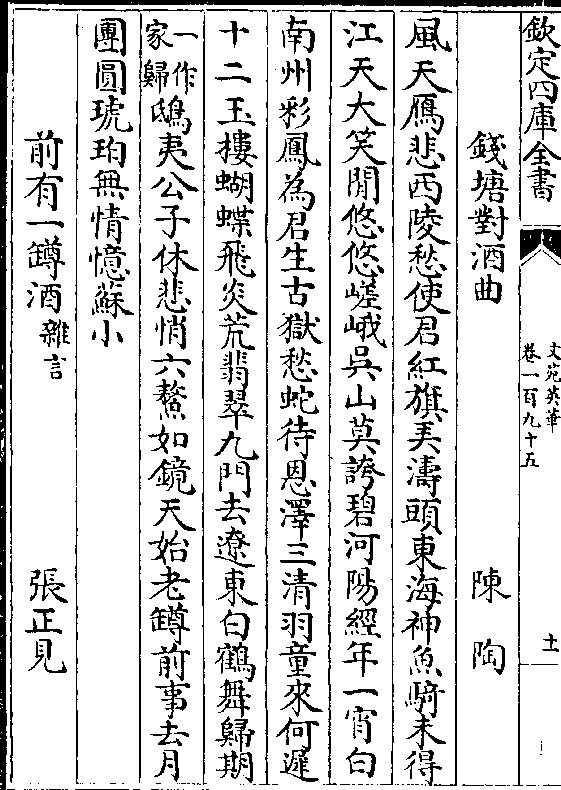 欽定四庫全書
文苑英華
卷一百九十五
十一
錢塘對酒曲 陳陶
風天鴈悲西陵愁使君紅旗弄濤頭東海神魚騎未得
江天大笑閒悠悠嵯峨吳山莫誇碧河陽經年一宵白
南州彩鳳為君生古獄愁蛇待恩澤三清羽童來何遲
十二玉樓蝴蝶飛炎荒翡翠九門去遼東白鶴舞歸期
一作
家歸
鴟夷公子休悲悄六鰲如鏡天始老罇前事去月
團圓琥珀無情憶蘇小
前有一罇酒 雜言 張正見